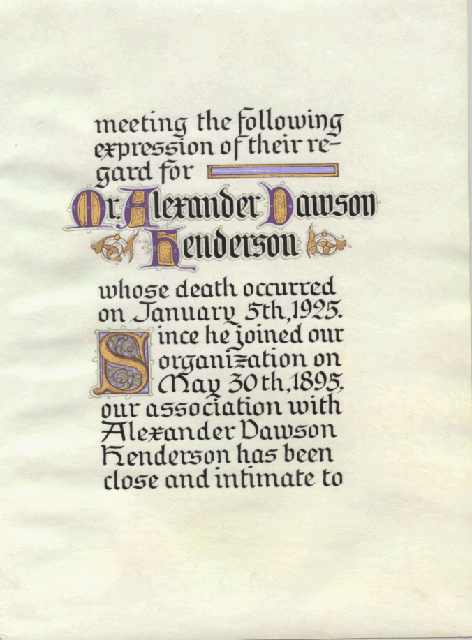 meeting the following
expression of their re-
gard for
Mr. Alexander Dawson
Henderson
whose death occurred
on January 5th, 1925.
Since he joined our
organization on
May 30th, 1895,
our association with
Alexander Dawson
Henderson has been
close and intimate to